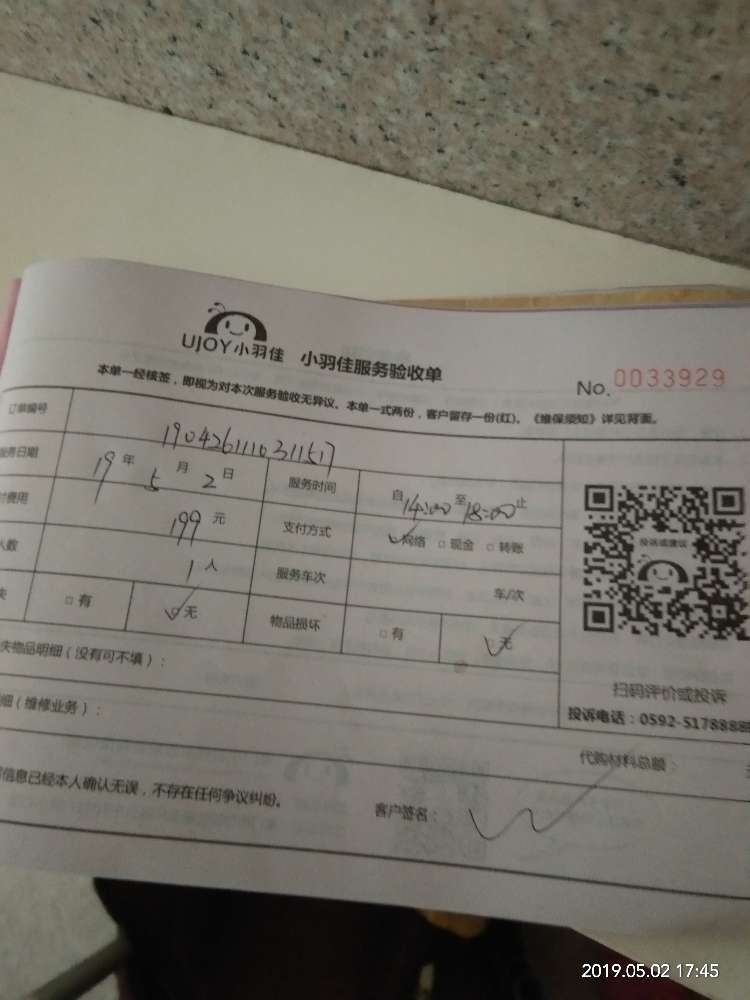 UJOY小羽佳 小羽佳服务验收单
No. 0033929
本单一经核签，即视为对本次服务验收无异议。本单一式两份，客户留存一份(红)。《维保须知》详见背面。
订单编号 190426111031157
服务日期 19年 5月 2日 服务时间 自14:00至18:00止
费用 199元 支付方式 ☑网络 □现金 □转账
人数 1人 服务车次 车/次
失 □有 ☑无 物品损坏 □有 ☑无
投诉或建议
扫码评价或投诉
投诉电话：0592-5178888
失物品明细（没有可不填）：
细（维修业务）：
代购材料总额：
信息已经本人确认无误，不存在任何争议纠纷。 客户签名：
2019.05.02 17:45